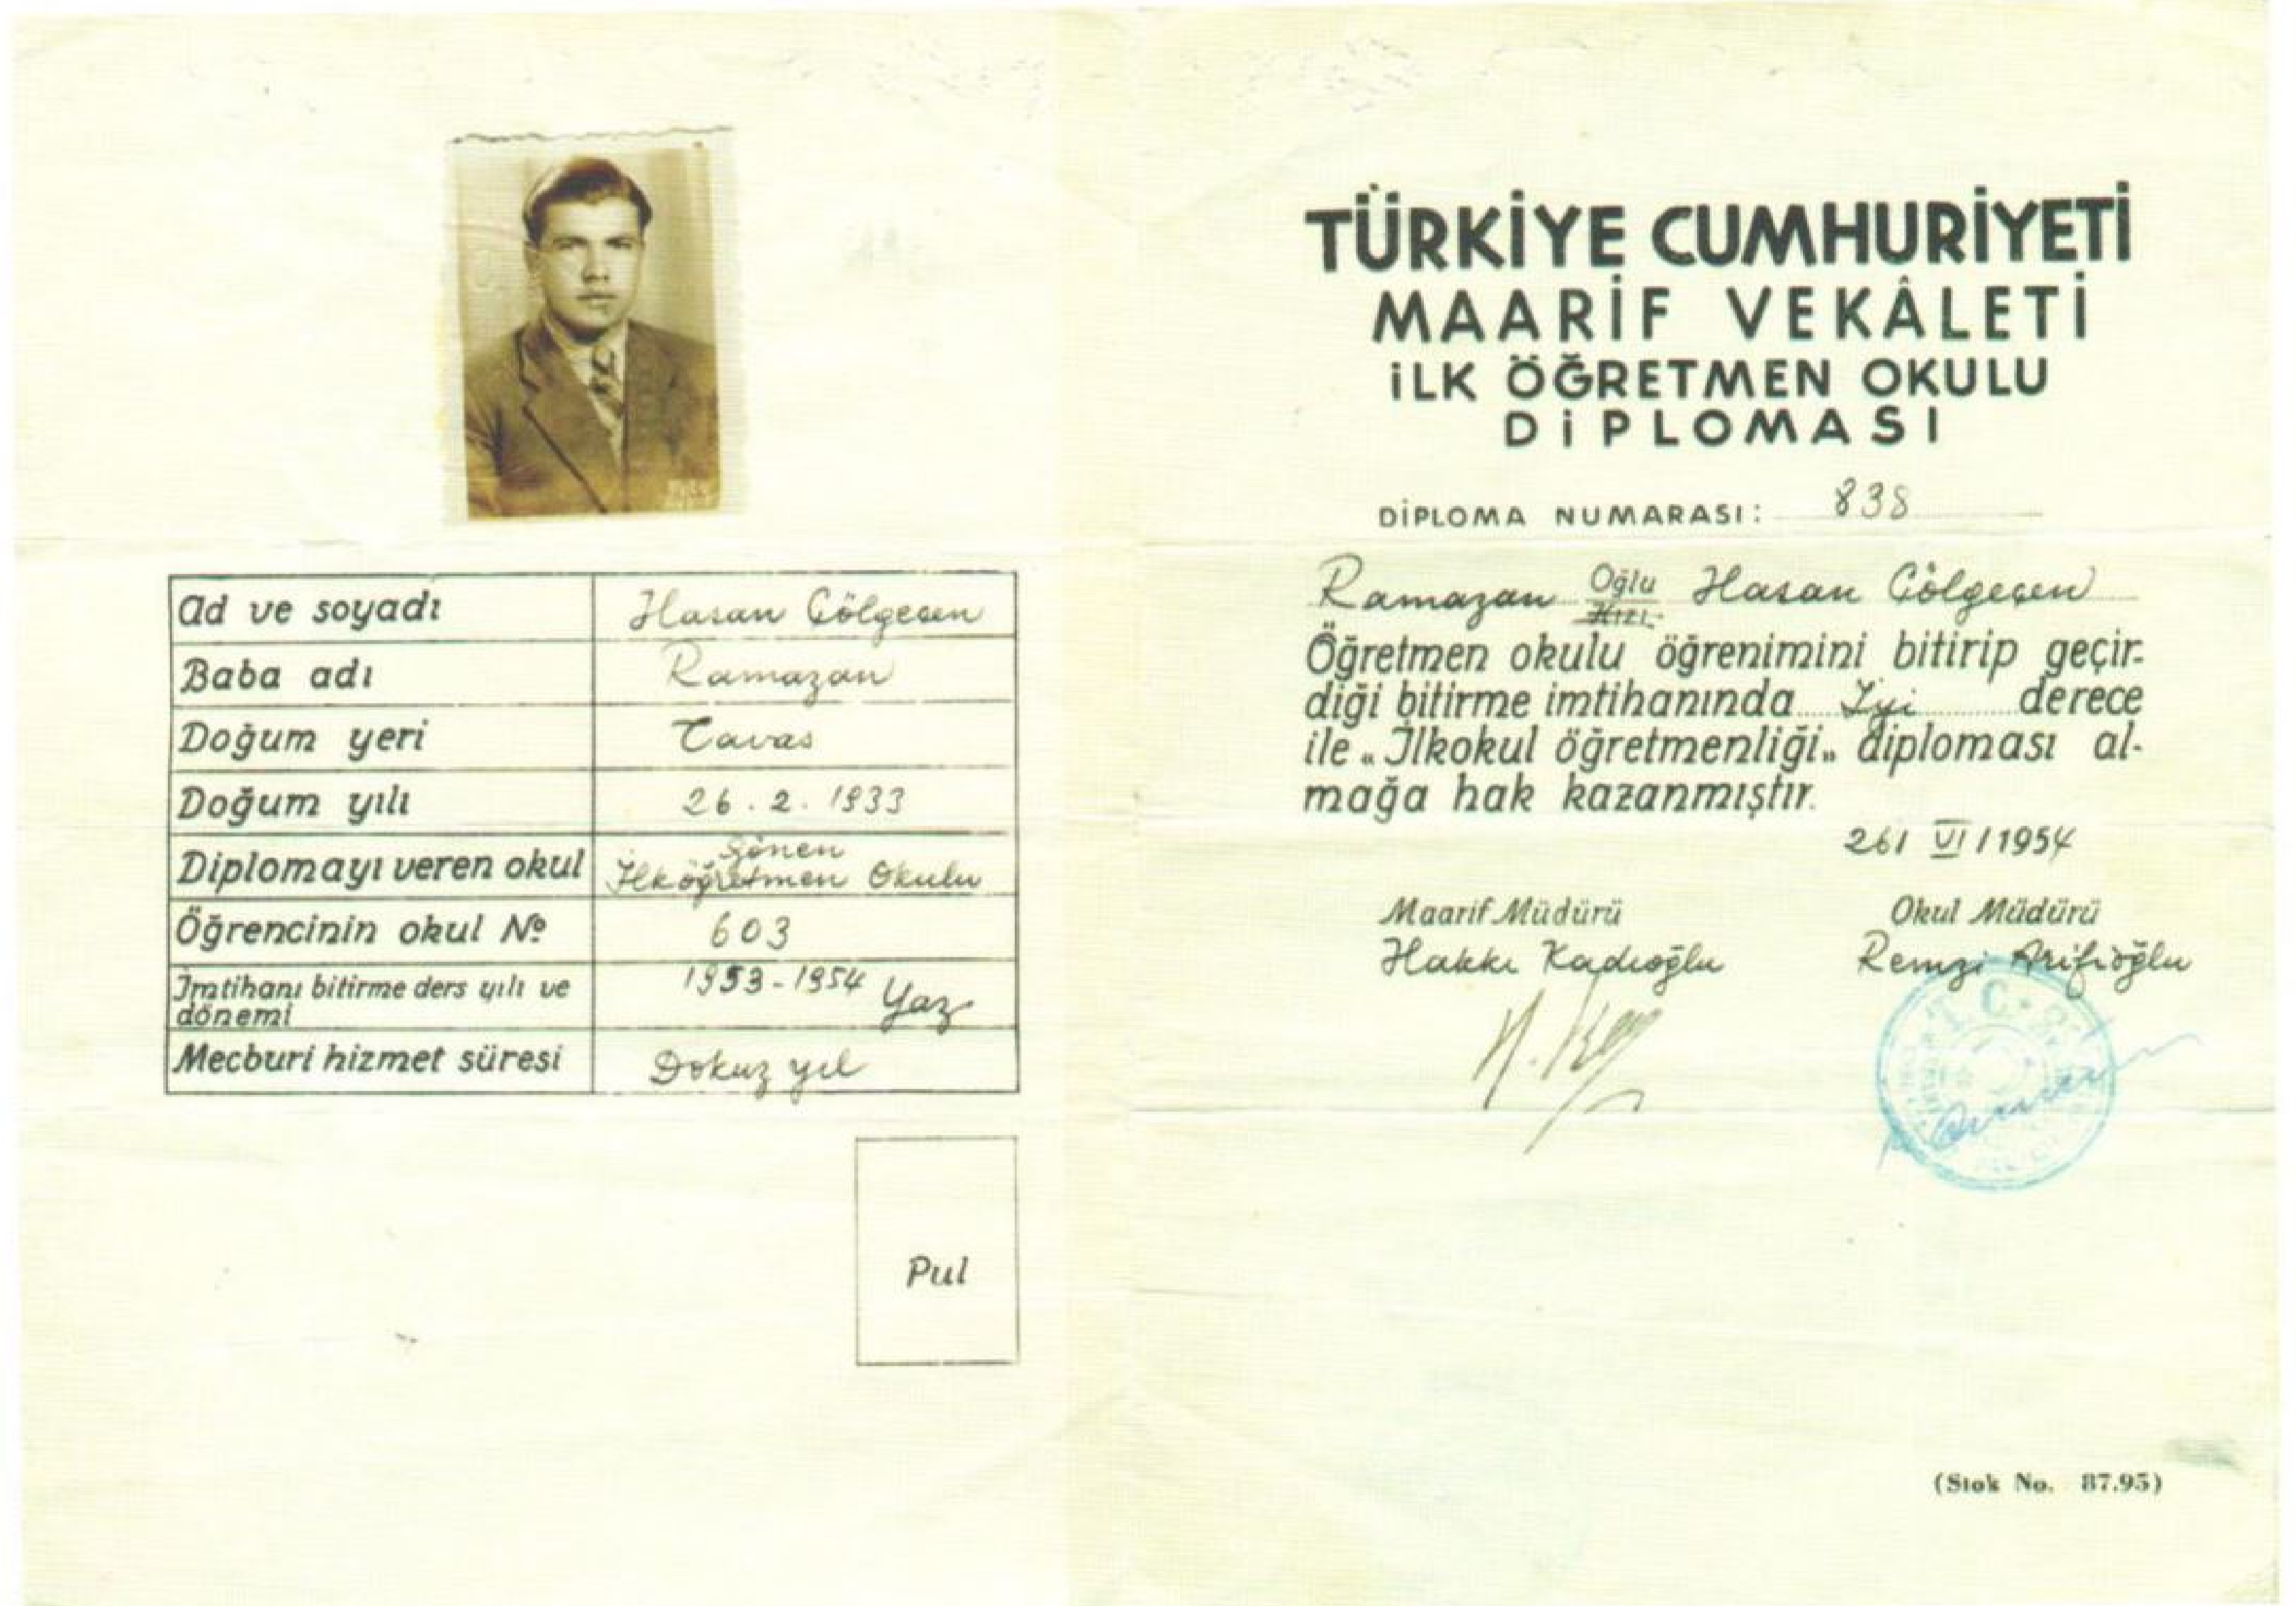 Ad ve soyadı Hasan Gölgeçen
Baba adı Ramazan
Doğum yeri Tavas
Doğum yılı 26.2.1933
Diplomayı veren okul Gönen
İlköğretmen Okulu
Öğrencinin okul № 603
İmtihanı bitirme ders yılı ve
dönemi 1953-1954 Yaz
Mecburi hizmet süresi Dokuz yıl
Pul
TÜRKİYE CUMHURİYETİ
MAARİF VEKÂLETİ
İLK ÖĞRETMEN OKULU
DİPLOMASI
DİPLOMA NUMARASI: 838
Ramazan Oğlu Kızı Hasan Gölgeçen
Öğretmen okulu öğrenimini bitirip geçir-
diği bitirme imtihanında İyi derece
ile „İlkokul öğretmenliği„ diploması al-
mağa hak kazanmıştır.
26/VI/1954
Maarif Müdürü Okul Müdürü
Hakkı Kadıoğlu Remzi Arifioğlu
T.C.
(Stok No. 87.95)